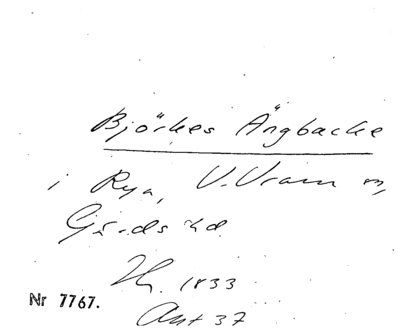 Björkes Ängbacke
i Rya, V. Vram m,
Gärds hd
Th. 1833
Nr 7767.
Ant 37